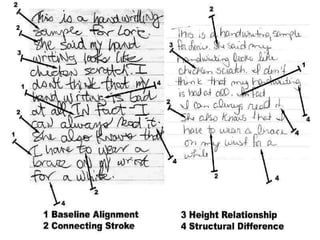 This is a handwriting
sample for Lori.
She said my hand
writing looks like
chicken scratch. I
dont think that my
handwriting is bad
at all. In fact I
can always read it.
She also knows that
I have to wear a
brace on my wrist
for a while.
This is a handwriting sample
for She said my
handwriting looks like
chicken scratch. I don't
think that my handwriting
is bad at all. In fact
I can always read it
She also knows that I
have to wear a brace
on my wrist for a
while
2
2
3
1
2
1
2
4
3
2
1
4
2
4
1 Baseline Alignment
2 Connecting Stroke
3 Height Relationship
4 Structural Difference